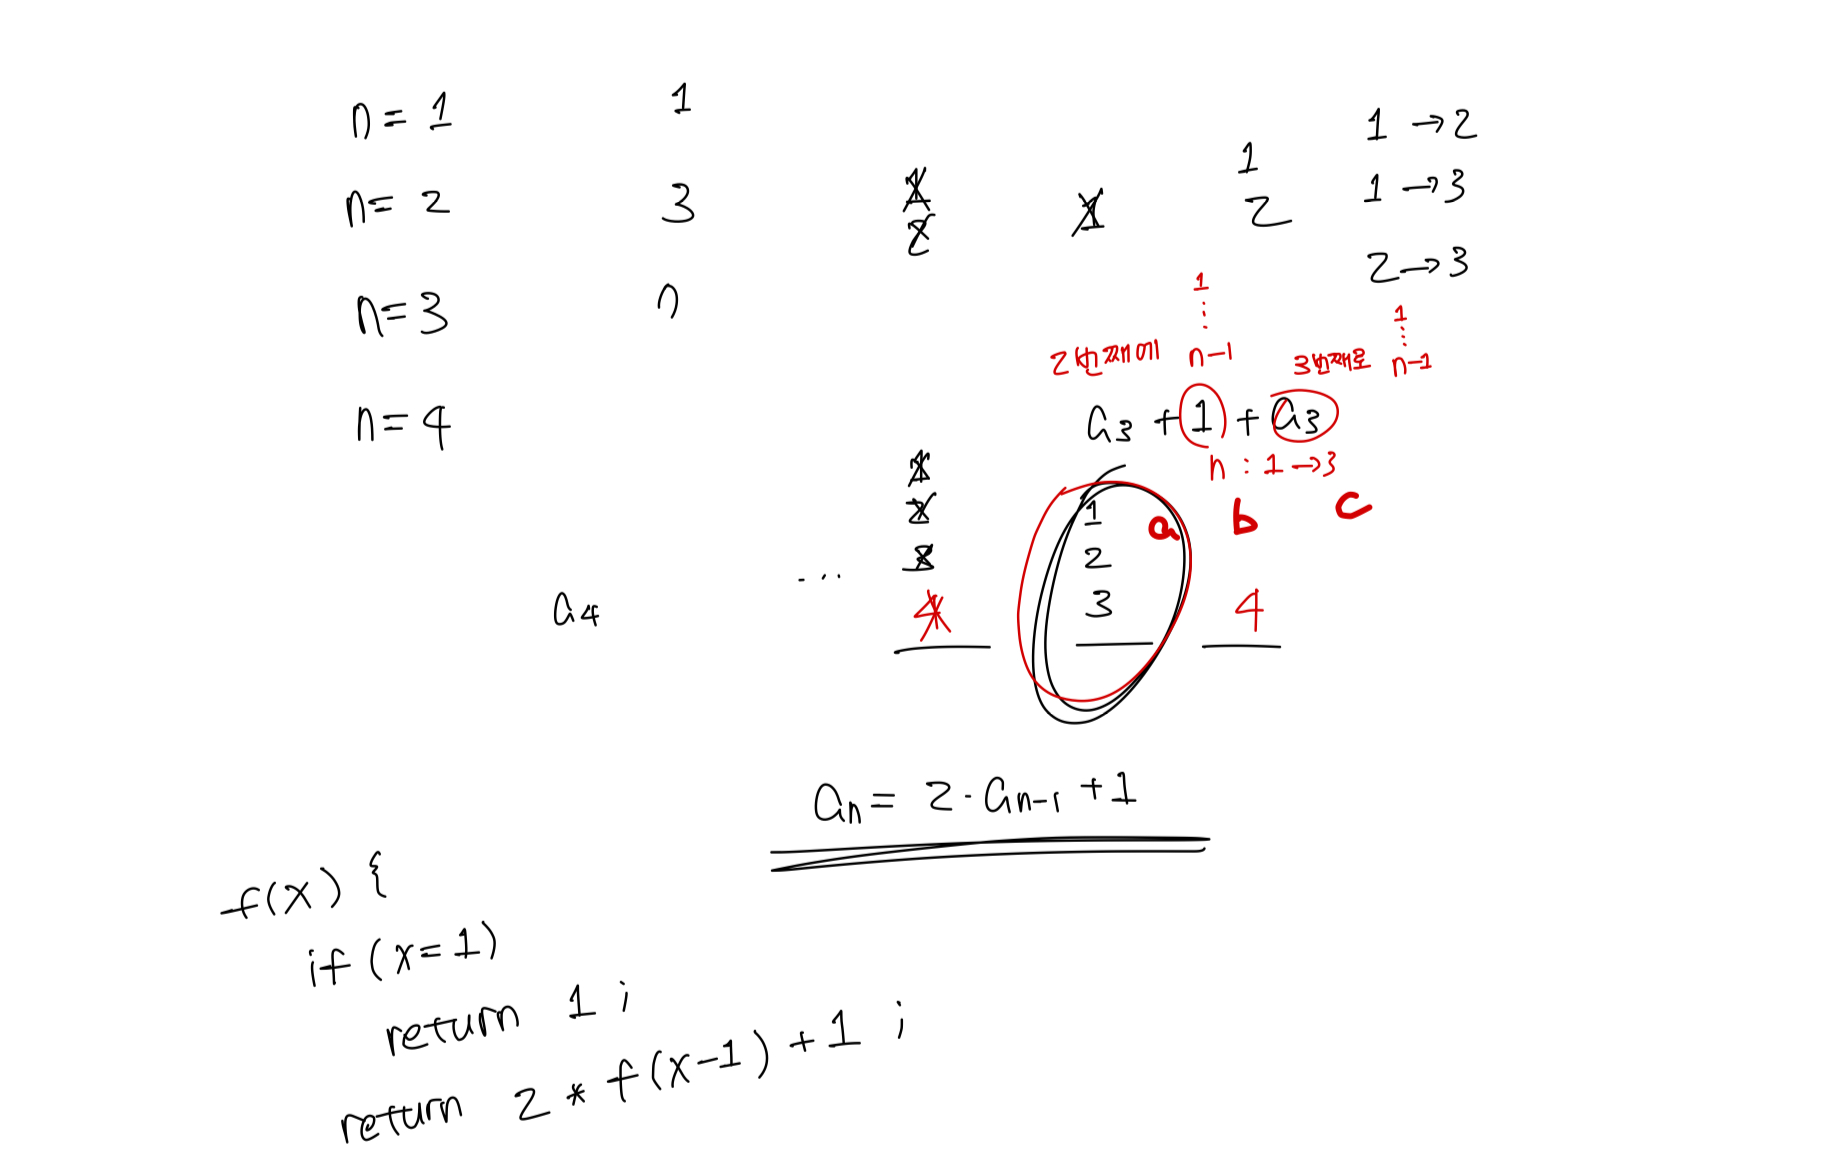 n = 1 1
n = 2 3
n = 3 n
n = 4
1
2
1
1
2
1 → 2
1 → 3
2 → 3
1
⋮
2번째에 n-1
1
⋮
3번째로 n-1
a₃ + 1 + a₃
n : 1 → 3
a b c
1
2
3
4
1
2
3
4
a₄ ...
aₙ = 2 · aₙ₋₁ + 1
f(x) {
if (x = 1)
return 1 ;
return 2 * f(x-1) + 1 ;